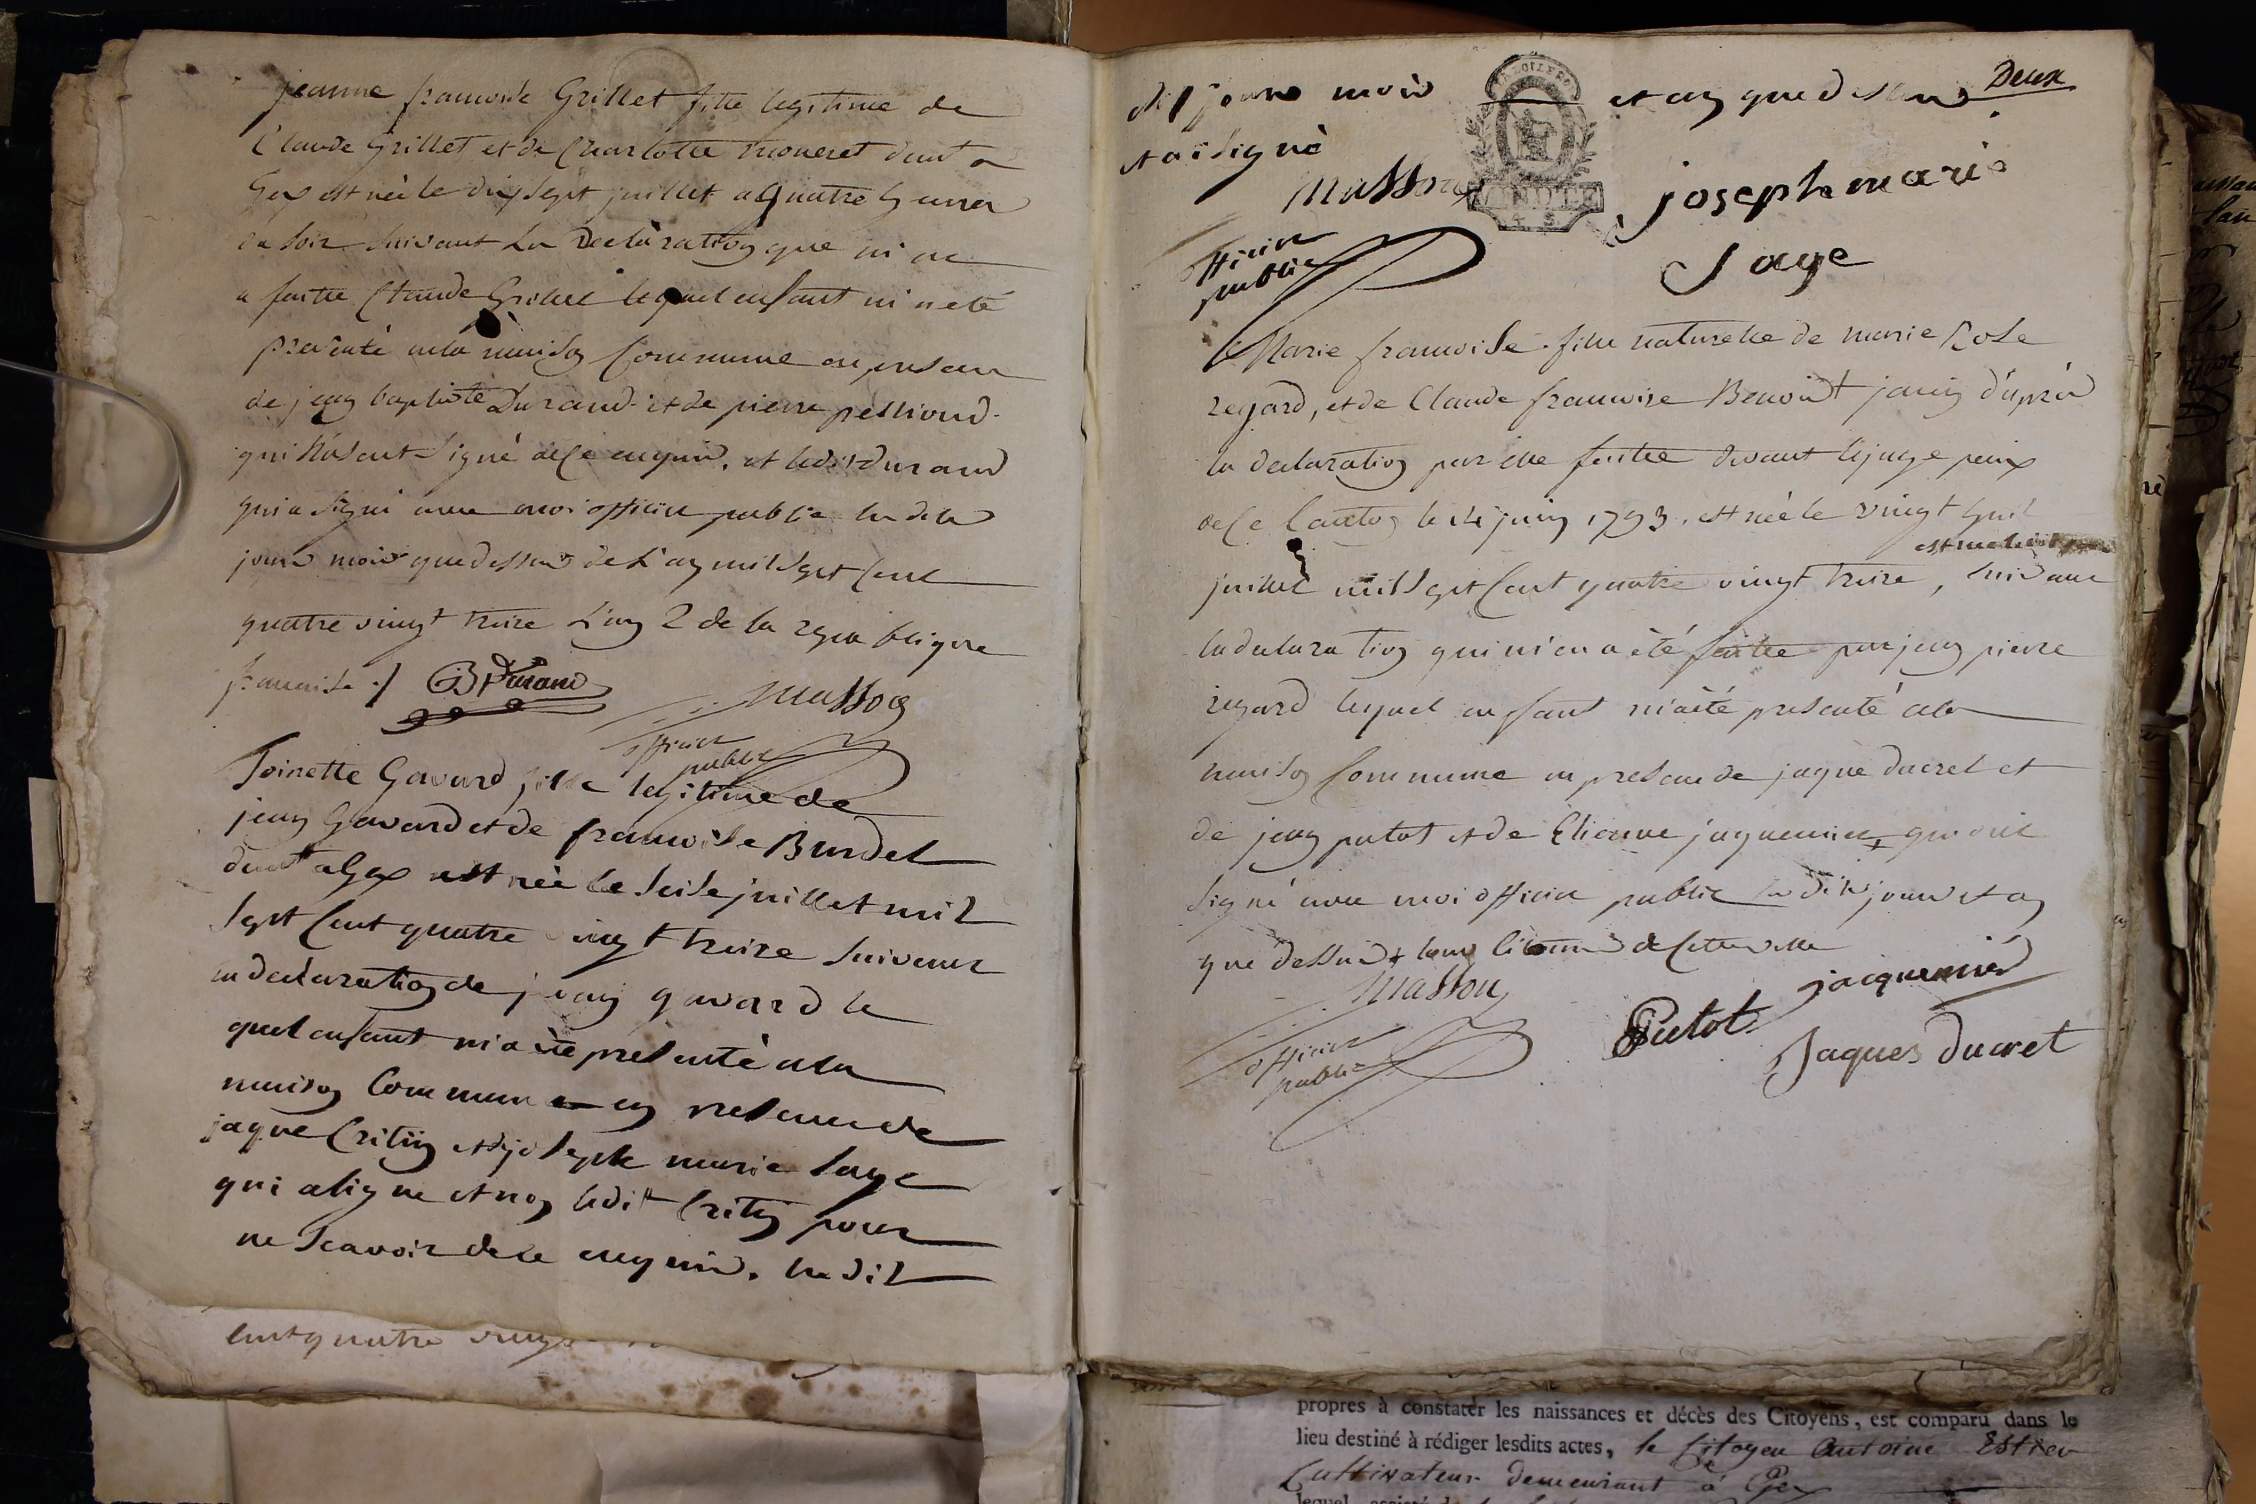 jeanne francoise Grillet fille legitime de
Claude Grillet et de Charlotte moneret demt a
Gex est née le dixsept juillet a quatre heures
du soir suivant la Declaration que m'en
a faitte Claude Grillet lequel enfant m'a eté
presenté a la maison Commune en presence
de jean baptiste Durand et de pierre
qui signé de ce enquis. et ledit durand
qui a signé avec moi officier public les dits
jours mois que dessus de L'an mil sept cent
quatre vingt treize L'an 2 de la republique
francaise ./. Durand
Masson
officier
public
Toinette Gavard fille legitime de
jean Gavard et de francoise Burdet
demt a Gex est née le seise juillet mil
sept cent quatre vingt treize suivant
la declaration de jean gavard le
quel enfant m'a eté presenté a la
maison Commune en presence de
jaque Critin et de joseph marie Saye
qui a signé et non ledit Critin pour
ne Scavoir de ce enquis. les dit
cent quatre vingt
Deux
dit jours mois et an que dessus
et ai signé
Masson
officier
public
joseph marie
Saye
Marie francoise fille naturelle de marie Rose
regard, et de Claude francoise Benoit janin d'après
la declaration par elle faitte devant le juge paix
de ce Canton le 14 juin 1793. est née le vingt huit
est née le
juillet mil sept Cent quatre vingt treize, suivant
la declaration qui m'en a été faitte par jean pierre
regard lequel enfant m'a été presenté a la
maison Commune en presence de jaque ducret et
de jean putot et de Etienne jaquemier + qui ont
signé avec moi officier public les dits jours et an
que dessus + tous Citoiens de Cette ville
Masson
officier
public
jacquemier
Putot
Jaques ducret
propres à constater les naissances et décès des Citoyens, est comparu dans le
lieu destiné à rédiger lesdits actes, le Citoyen Antoine Estier
Cultivateur demeurant à Gex
lequel